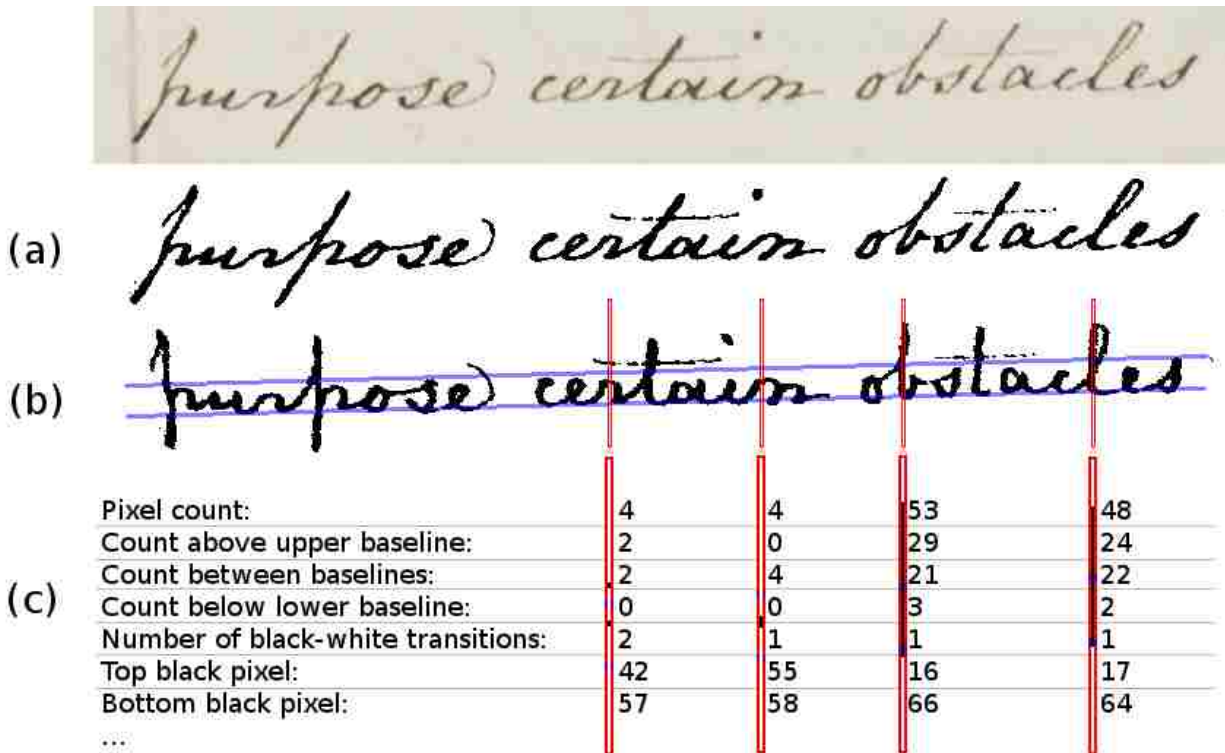 purpose certain obstacles
(a) purpose certain obstacles
(b) purpose certain obstacles
(c)
Pixel count: 4 4 53 48
Count above upper baseline: 2 0 29 24
Count between baselines: 2 4 21 22
Count below lower baseline: 0 0 3 2
Number of black-white transitions: 2 1 1 1
Top black pixel: 42 55 16 17
Bottom black pixel: 57 58 66 64
...